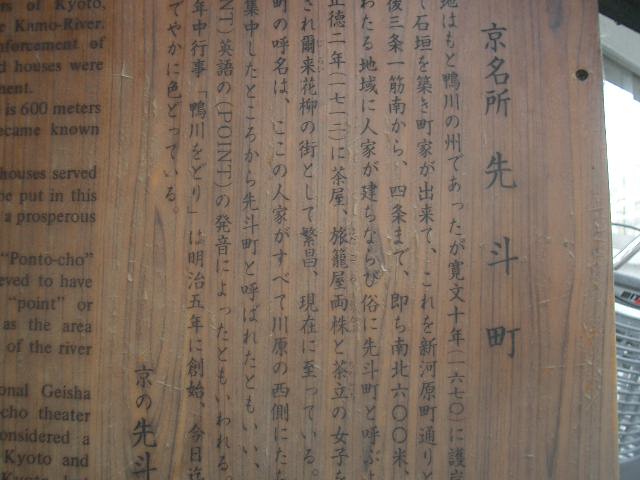 京名所 先斗町
地はもと鴨川の州であったが寛文十年(一六七〇)に護岸
て石垣を築き町家が出来て、これを新河原町通りと
後三条一筋南から、四条まで、即ち南北六〇〇米、
わたる地域に人家が建ちならび俗に先斗町と呼ぶよ
正徳二年(一七一二)に茶屋、旅籠屋両株と茶立の女子を
され爾来花柳の街として繁昌、現在に至っている。
町の呼名は、ここの人家がすべて川原の西側にたち
集中したところから先斗町と呼ばれたともいい、
NT)英語の(POINT)の発音によったともいわれる。
年中行事「鴨川をどり」は明治五年に創始、今日迄
でやかに色どっている。
京の先斗
rs of Kyoto,
e Kamo-River.
nforcement of
d houses were
ment.
is 600 meters
ecame known
houses served
be put in this
a prosperous
"Ponto-cho"
eved to have
"point" or
as the area
of the river
onal Geisha
cho theater
onsidered a
Kyoto and